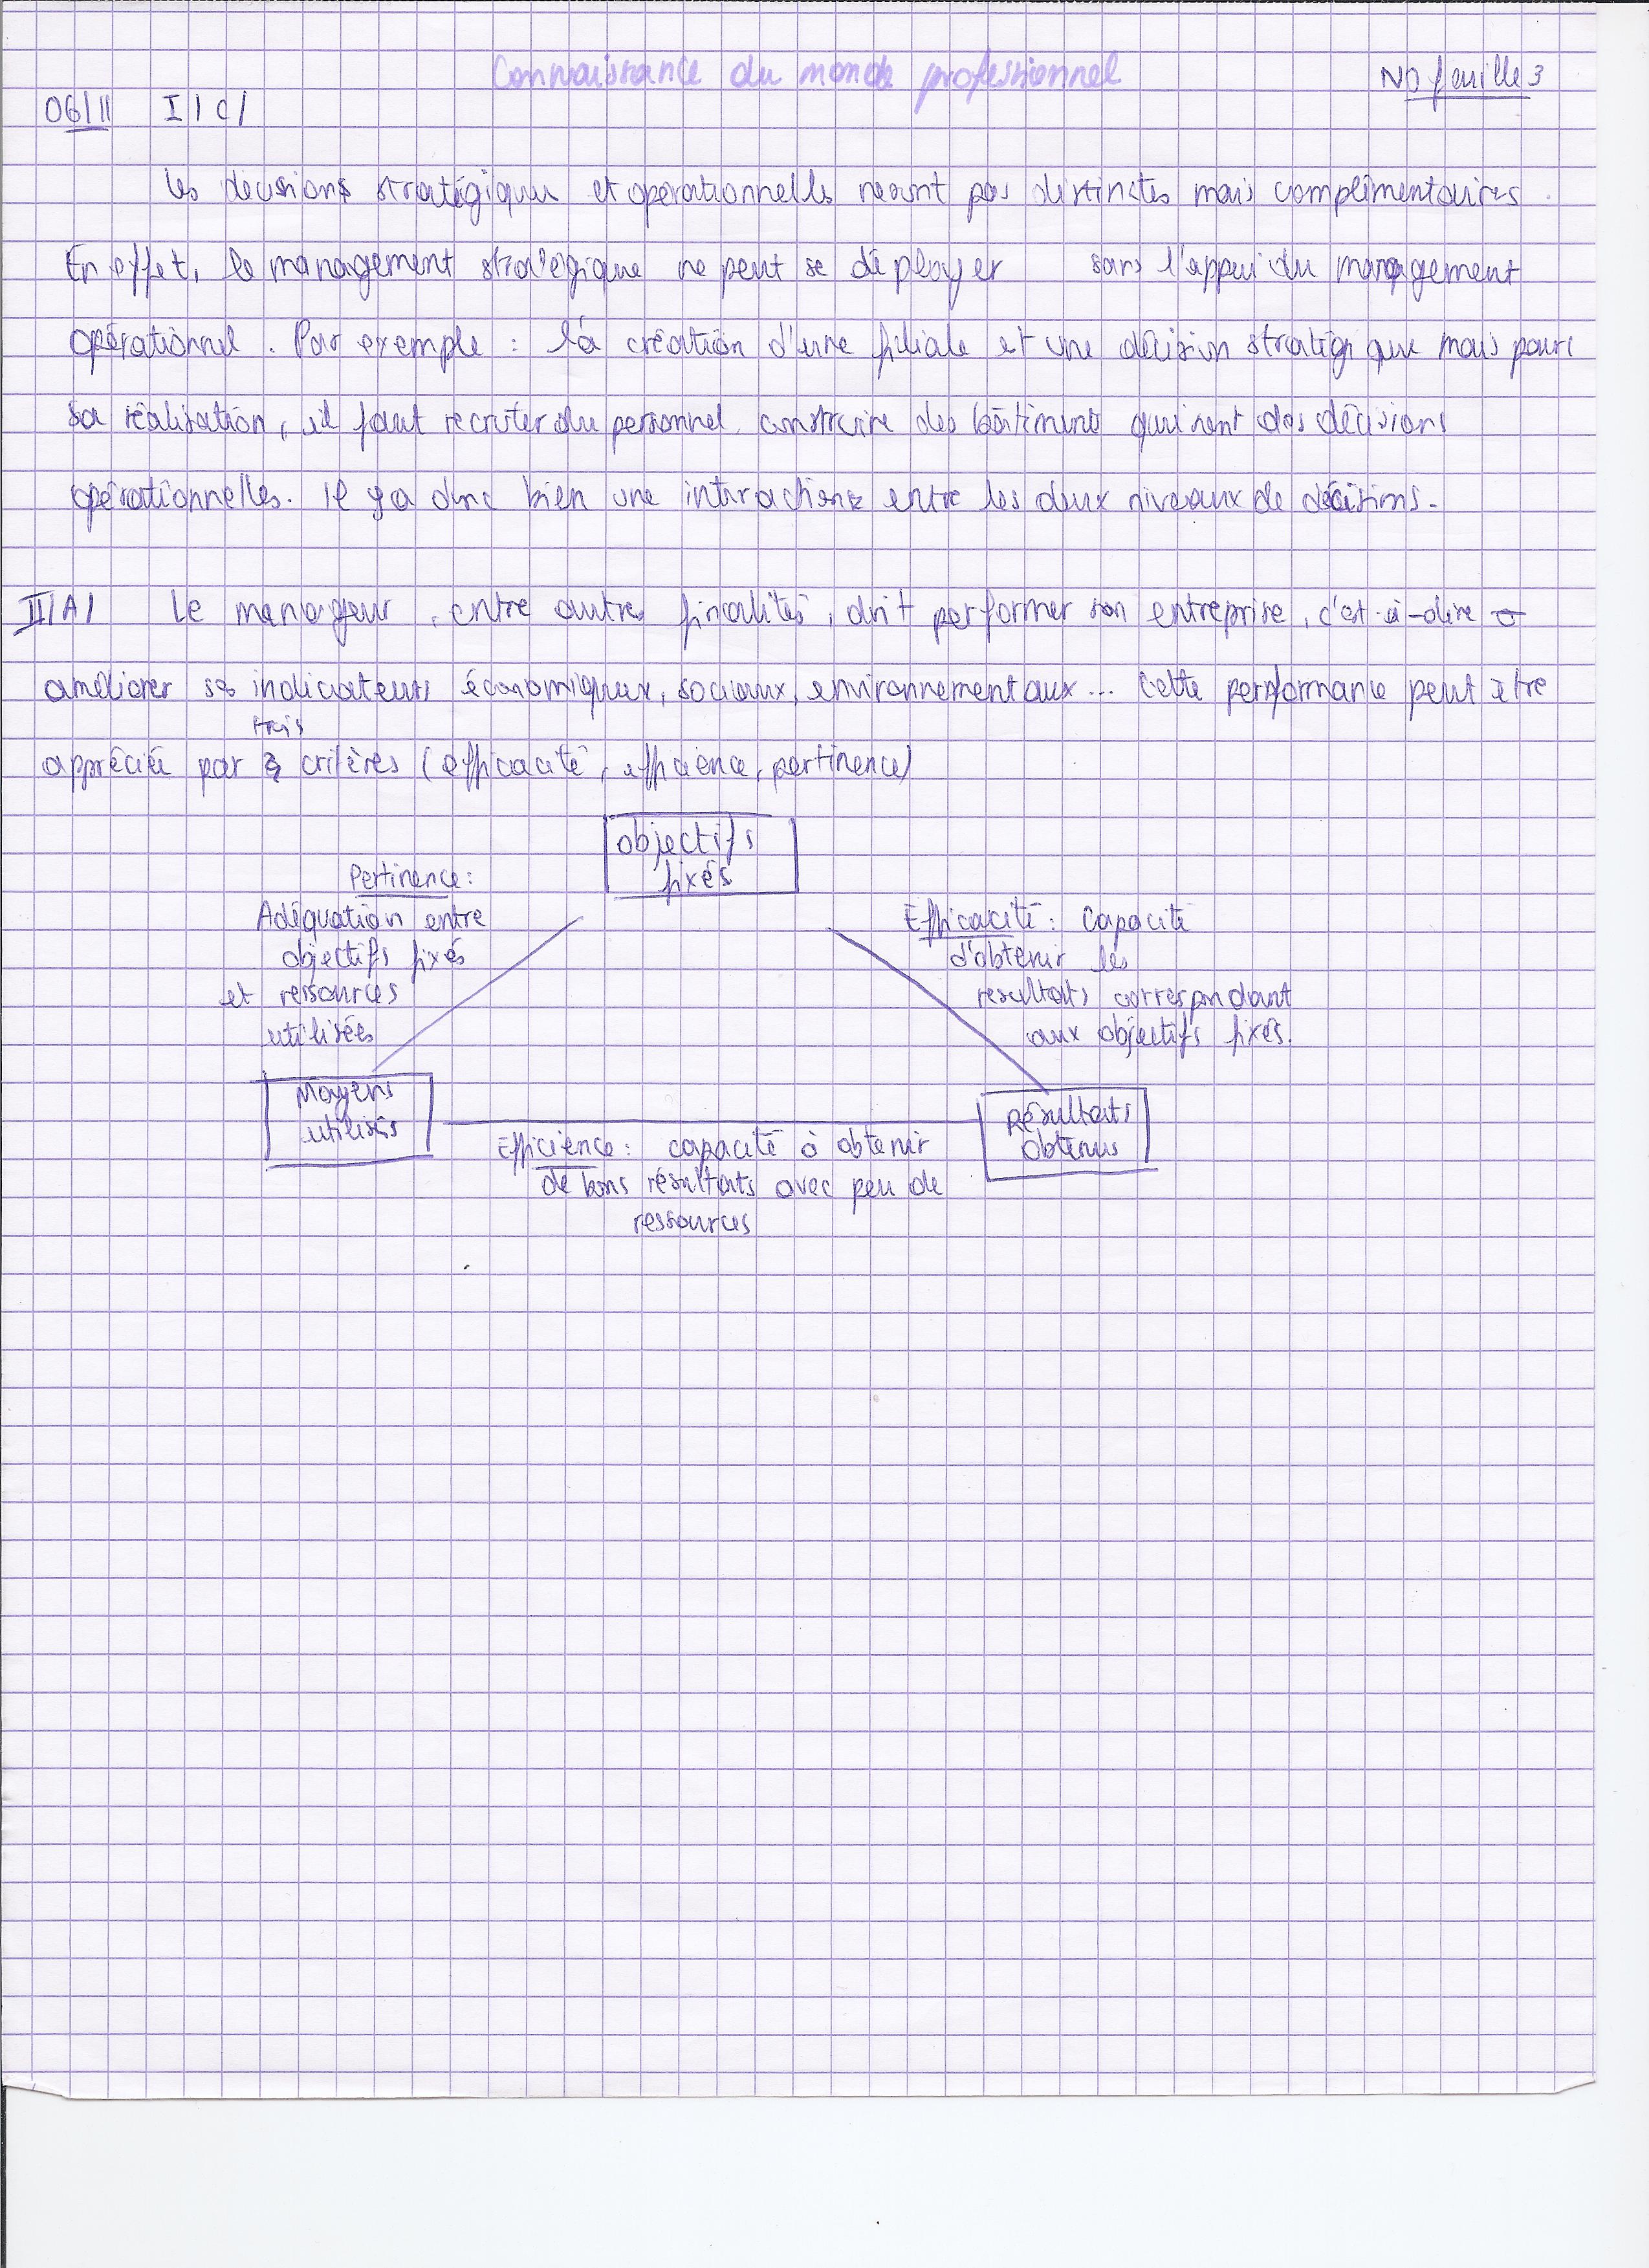 Connaissance du monde professionnel
NO feuille 3
06/11 I/C/
les décisions stratégiques et opérationnelles ne sont pas distinctes mais complémentaires.
En effet, le management stratégique ne peut se déployer sans l'appui du management
opérationnel. Par exemple : la création d'une filiale et une décision stratégique mais pour
sa réalisation, il faut recruter du personnel, construire des bâtiments qui sont des décisions
opérationnelles. Il y a donc bien une interactions entre les deux niveaux de décisions.
II/A/ Le manageur, entre autres finalités, doit performer son entreprise, c'est-à-dire
améliorer ses indicateurs économiques, sociaux, environnementaux... Cette performance peut être
trois
appréciée par critères (efficacité, efficience, pertinence)
objectifs
fixés
Pertinence :
Adéquation entre
objectifs fixés
et ressources
utilisées
Efficacité : Capacité
d'obtenir les
résultats correspondant
aux objectifs fixés.
Moyens
utilisés
Résultats
obtenus
Efficience : capacité à obtenir
de bons résultats avec peu de
ressources